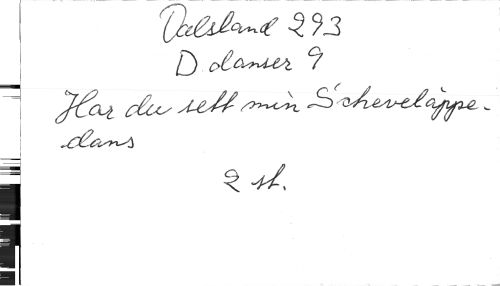 Dalsland 293
D danser 9
Har du sett min Scheveläppe-
dans
2 st.